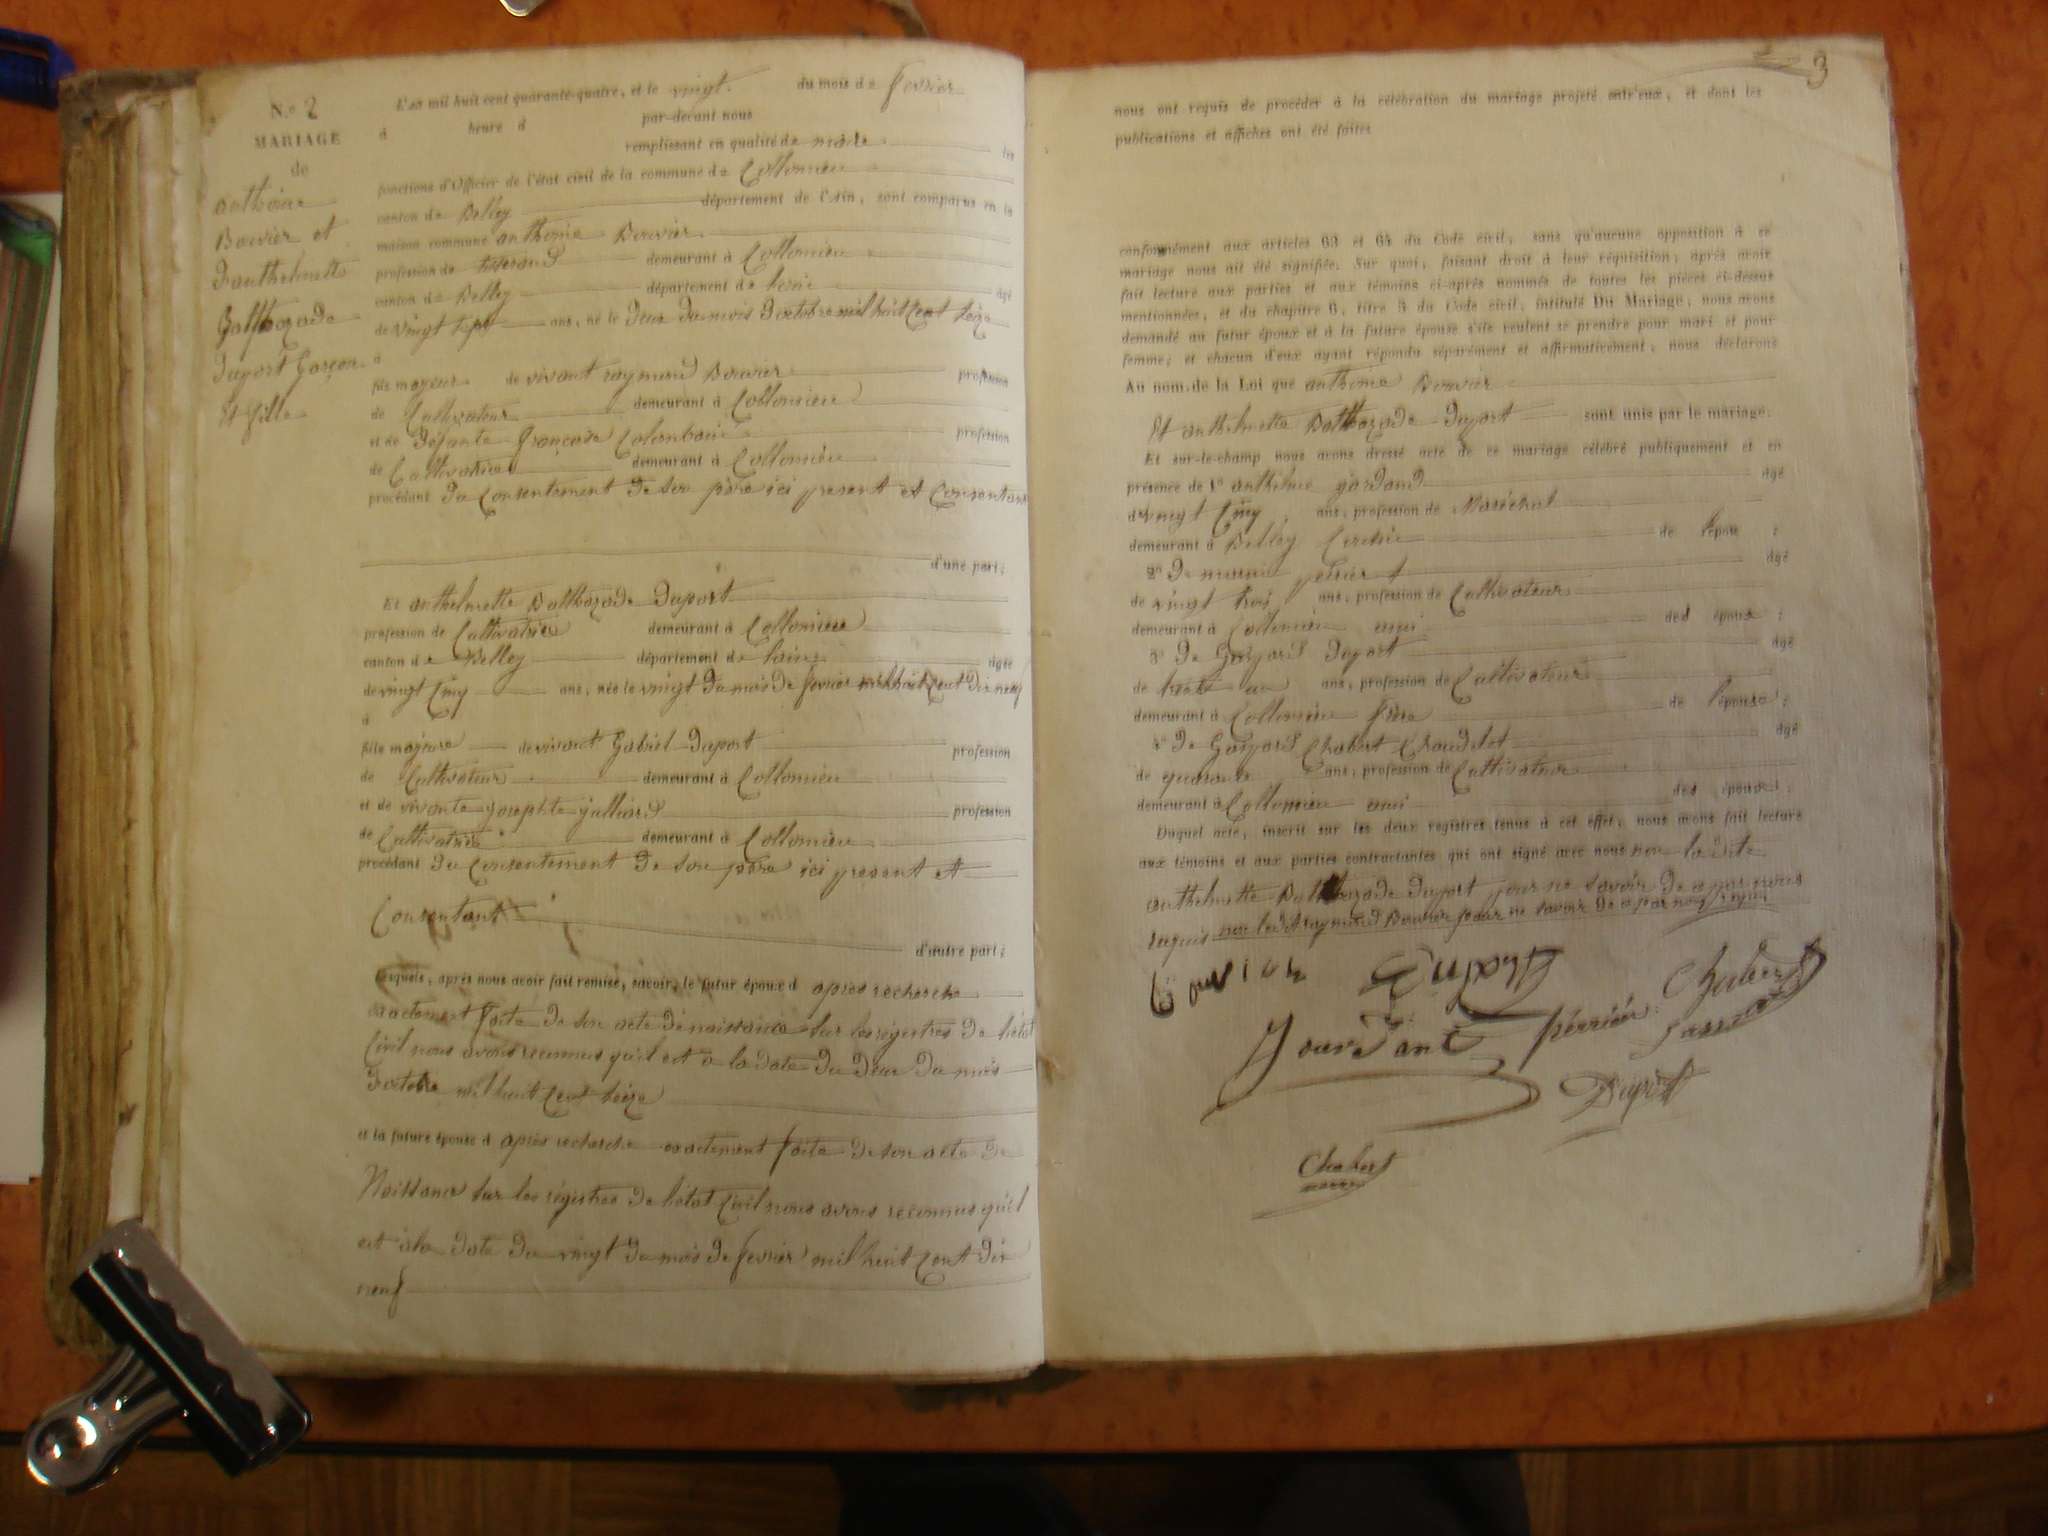 N.o 2
MARIAGE
de
anthoine
Bouvier et
Danthelmette
Balthazade
Duport Garçon
Et fille
L'an mil huit cent quarante-quatre, et le vingt du mois de fevrier
à heure d par-devant nous
remplissant en qualité de maire les
fonctions d'Officier de l'état civil de la commune de Collomieu
canton de Belley département de l'Ain, sont comparus en la
maison commune anthoine Bouvier
profession de tisserand demeurant à Collomieu
canton de Belley département de âgé
de vingt sept ans, né le deux du mois doctobre mil huit cent seize
à
fils mayeur de vivant raymond Bouvier profession
de Cultivateur demeurant à Collomieu
et de défunte françoise profession
de Cultivatrice demeurant à Collomieu
procédant du Consentement de son père ici present et Consentant
d'une part;
Et anthelmette Balthazade Duport
profession de Cultivatrice demeurant à Collomieu
canton de Belley département de lain âgée
de vingt Cinq ans, née le vingt du mois de fevrier mil huit cent dix neuf
à
fille majeure de vivant Gabriel Duport profession
de Cultivateur demeurant à Collomieu
et de vivante josephte profession
de Cultivatrice demeurant à Collomieu
procédant du Consentement de son père ici present et
Consentant
d'autre part;
Lesquels, après nous avoir fait remise, savoir, le futur époux d apres recherche
exactement faite de son acte de naissance sur les registres de létat
Civil nous avons reconnus qu'il est à la date du deux du mois
doctobre mil huit Cent seize
et la future épouse d apres recherche exactement faite de son acte de
Naissance sur les régistres de létat Civil nous avons reconnus qu'il
est à la date du vingt du mois de fevrier mil huit Cent dix
neuf
3
nous ont requis de procéder à la célébration du mariage projeté entr'eux, et dont les
publications et affiches ont été faites
conformément aux articles 63 et 64 du Code civil, sans qu'aucune opposition à ce
mariage nous ait été signifiée. Sur quoi, faisant droit à leur réquisition, après avoir
fait lecture aux parties et aux témoins ci-après nommés de toutes les pièces ci-dessus
mentionnées, et du chapitre 6, titre 5 du Code civil, intitulé Du Mariage, nous avons
demandé au futur époux et à la future épouse s'ils veulent se prendre pour mari et pour
femme; et chacun d'eux ayant répondu séparément et affirmativement, nous déclarons
Au nom de la Loi que anthoine Bouvier
Et anthelmette Balthazade Duport sont unis par le mariage.
Et sur-le-champ nous avons dressé acte de ce mariage célébré publiquement et en
présence de 1o anthelme âgé
de vingt Cinq ans, profession de Maréchal
demeurant à Belley de lepoux;
2o De âgé
de vingt trois ans, profession de Cultivateur
demeurant à Collomieu ami des époux;
3o De Gaspard Duport âgé
de ans, profession de Cultivateur
demeurant à Collomieu frère de lépouse;
4o De Gaspard Chabert âgé
de quarante ans, profession de Cultivateur
demeurant à Collomieu ami des époux;
Duquel acte, inscrit sur les deux registres tenus à cet effet, nous avons fait lecture
aux témoins et aux parties contractantes qui ont signé avec nous non la dite
anthelmette Balthazade Duport pour ne savoir de ce par nous
requis non ledit raymond Bouvier pour ne savoir de ce par nous requis
Bouvier
Chabert
Jourdant
perrier
Duport
Chabert
maire